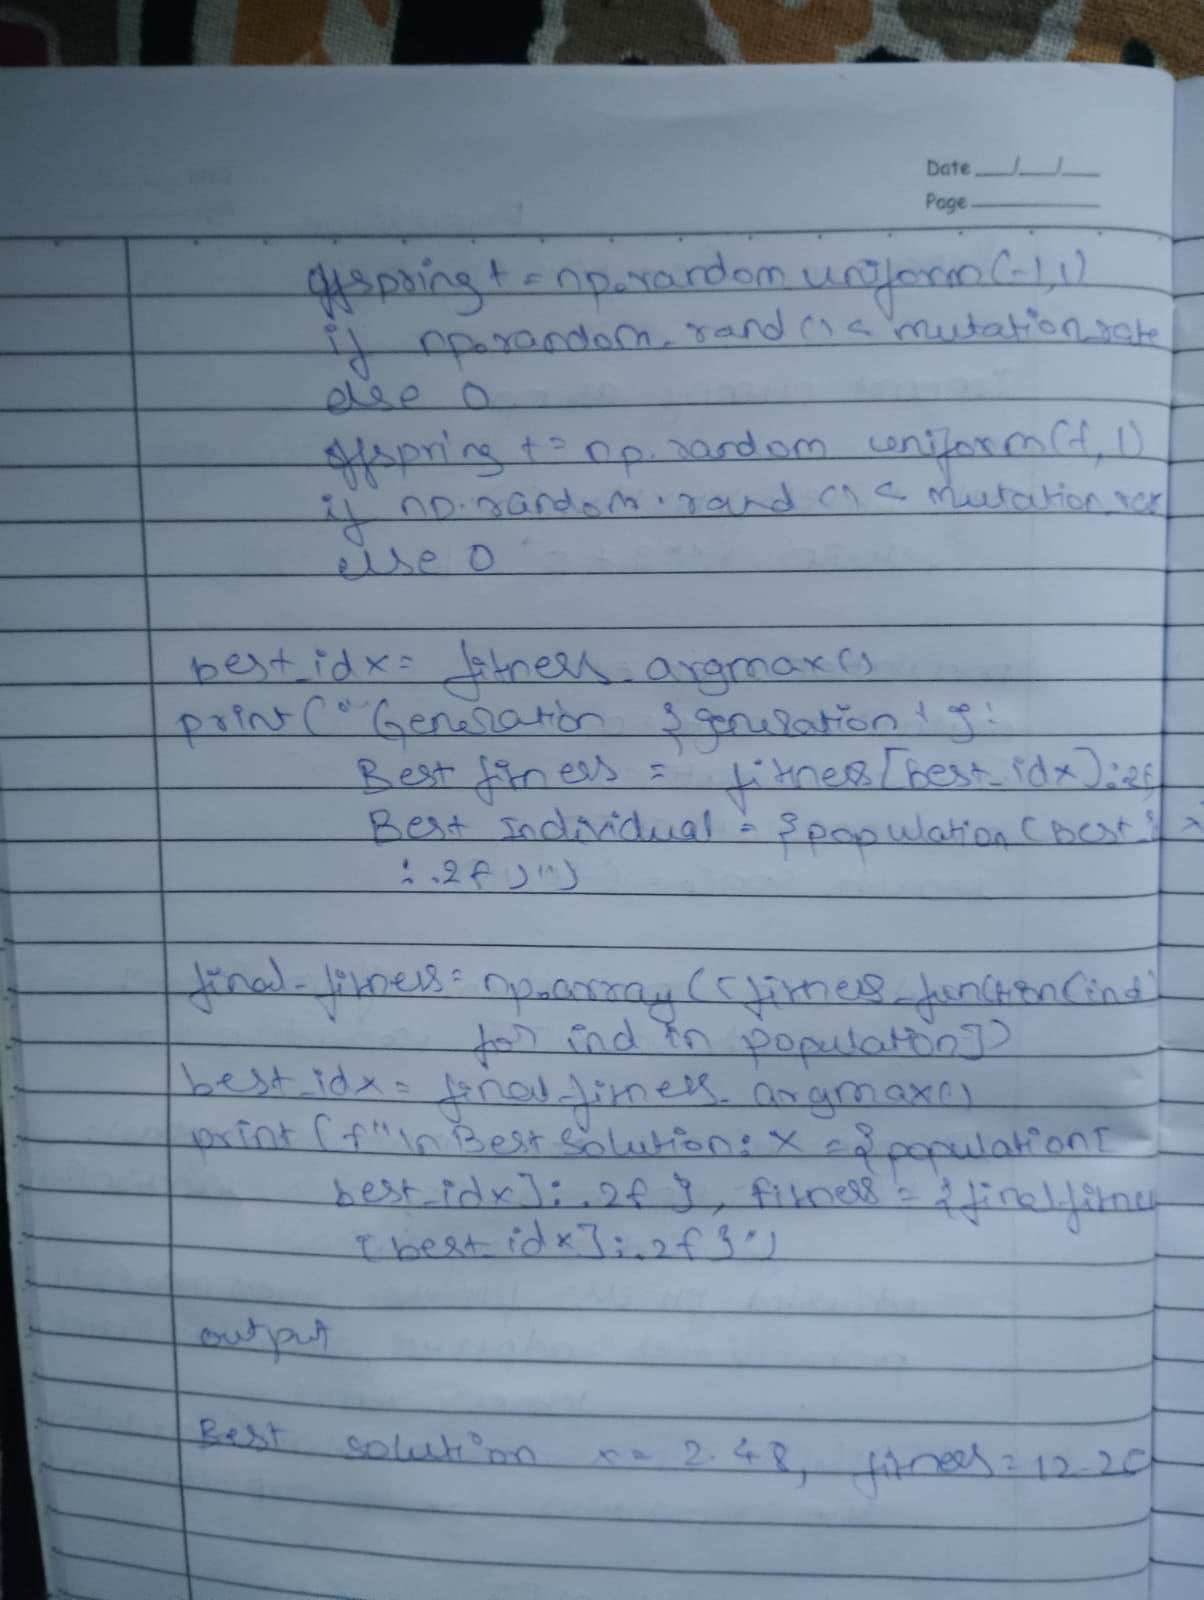 Date __/__/__
Page
offspring += np.random.uniform(-1,1)
if np.random.rand() < mutation_rate
else 0
offspring += np.random uniform(-1,1)
if np.random.rand() < mutation_rate
else 0
best_idx = fitness.argmax()
print("Generation {generation + }:
Best fitness = fitness[best_idx]:2f
Best Individual = {population(best
:.2f)")
final_fitness = np.array([fitness_function(ind)
for ind in population])
best_idx = final_fitness.argmax()
print(f"\n Best solution: X = {population[
best_idx]:.2f}, fitness = {final_fitne
[best_idx]:.2f}")
output
Best solution x = 2.48, fitness = 12.20